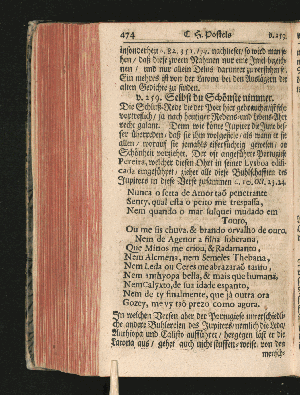 474 C. H. Postels v. 259.
insonderheit v. 82. 351. nachlieset, so wird man sehen /
daß diese zween Nahmen nur eine Insel bezeichnen
nen / und nur allein Delus darunter zu verstehen.
Ein mehres ist von der Latona bey den Auslägern der
alten Gedichte zu finden.
v. 259. Selbst die Schönste nimmer.
Die Schluß-Rede die der Poet hier gebraucht ist sehr
vortreflich / ja nach heutiger Redens- und Lebens-Art
recht galant. Denn wie könte Jupiter die Juno
besser überreden / daß sie ihm
allen / worauf sie jemahls eifersüchtig gewesen / an
Schönheit vorziehet. Der oft angeführte Portugiese
Pereira, welcher diesen Ort in seiner
eingeführet / ziehet alle diese Buhlschafften des
Jupiters in diese Verse zusammen c. 10. oct. 23. 24.
Nunca o setta de Amor taõ penetrante
Senty, qual esta o peito me trespassa,
Nem quando o mar sulquei mudado em
Touro,
Ou me fis chuva, & brando orvalho de ouro.
Nem de Agenor a filha soberana,
Que Minos me criou, & Radamanto,
Nem Alcmena, nem Semeles Thebana,
Nem Leda ou Ceres me abrazaraõ tanto,
Nem Anthyopa bella, & mais que humana,
Nem Calyxto, de sua idade espanto,
Nem de ty finalmente, que já outra ora
Gozey, me vy taõ prezo como agora.
In welchen Versen aber der Portugiese unterschiedliche
andere Buhlereien des Jupiters / nemlich die Leda /
Anthiopa und Calisto aufführet / hergegen läst er die
Latona aus / gehet auch nicht stuffen-weise von den
mensch-